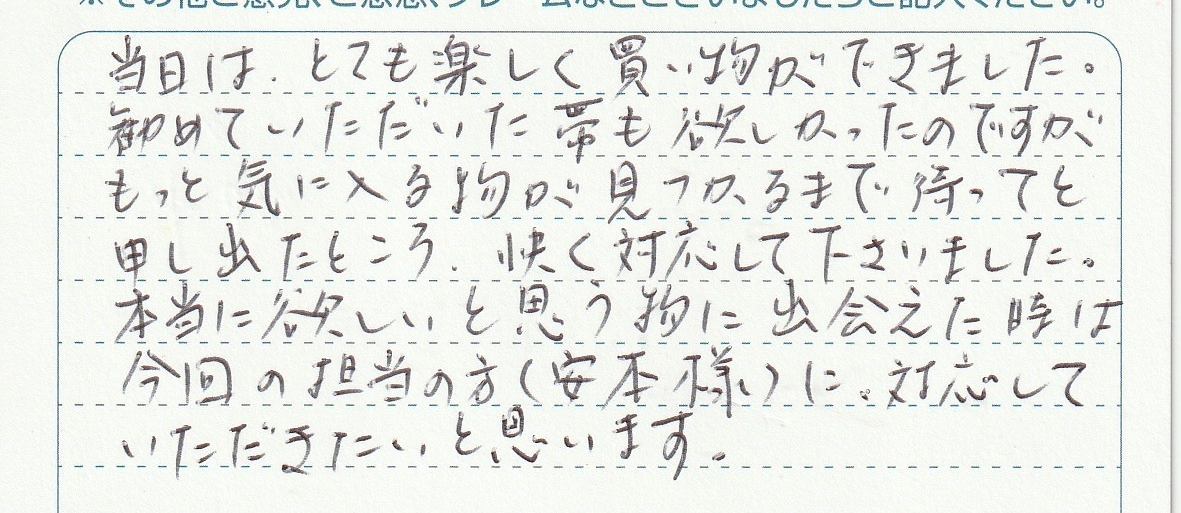 ※その他ご意見、ご感想、クレームなどございましたらご記入ください。
当日は、とても楽しく買い物ができました。
勧めていただいた帯も欲しかったのですが
もっと気に入る物が見つかるまで待ってと
申し出たところ、快く対応して下さいました。
本当に欲しいと思う物に出会えた時は
今回の担当の方(安本様)に、対応して
いただきたいと思います。